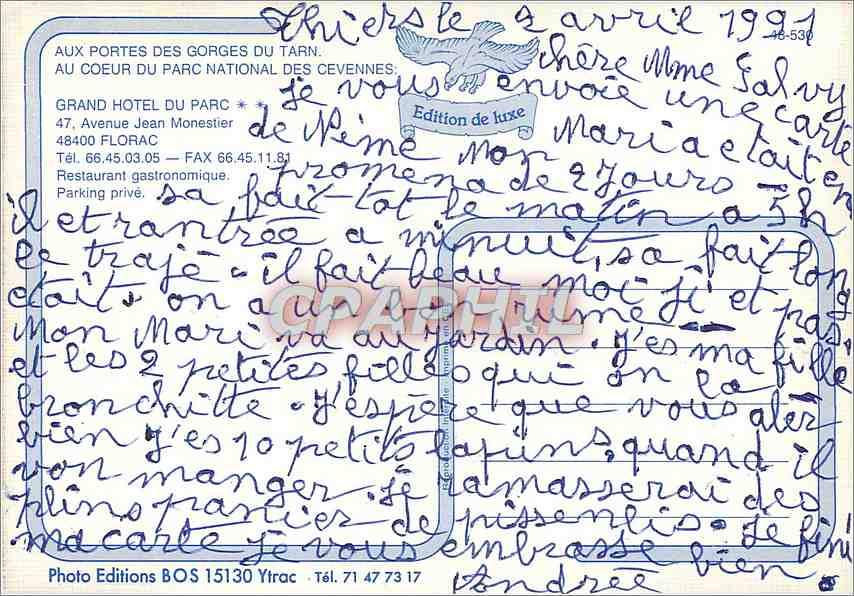 Thiers le 2 avril 1991
48-530
AUX PORTES DES GORGES DU TARN.
AU COEUR DU PARC NATIONAL DES CEVENNES:
GRAND HOTEL DU PARC ★ ★
47, Avenue Jean Monestier
48400 FLORAC
Tél. 66.45.03.05 — FAX 66.45.11.81
Restaurant gastronomique.
Parking privé.
Edition de luxe
chère Mme Galvy
je vous envoie une carte
de Nime Mon Mari a etait en
promenade 2 jours -
sa fait tot le matin a 5h
il et rantrée a minuit, sa fait long
le trajé - il fait beau moi ji et pas
était. on a un ben rume -
Mon Mari va au jardin. j'es ma fille
et les 2 petites filles qui on la
bronchitte. j'espère que vous alér
bien j'es 10 petits lapins, quand il
von manger. je ramasserai des
plins panier de pissenlis. je fini
ma carte je vous embrasse bien.
Andrée
CPAPHIL
Photo Editions BOS 15130 Ytrac - Tél. 71 47 73 17